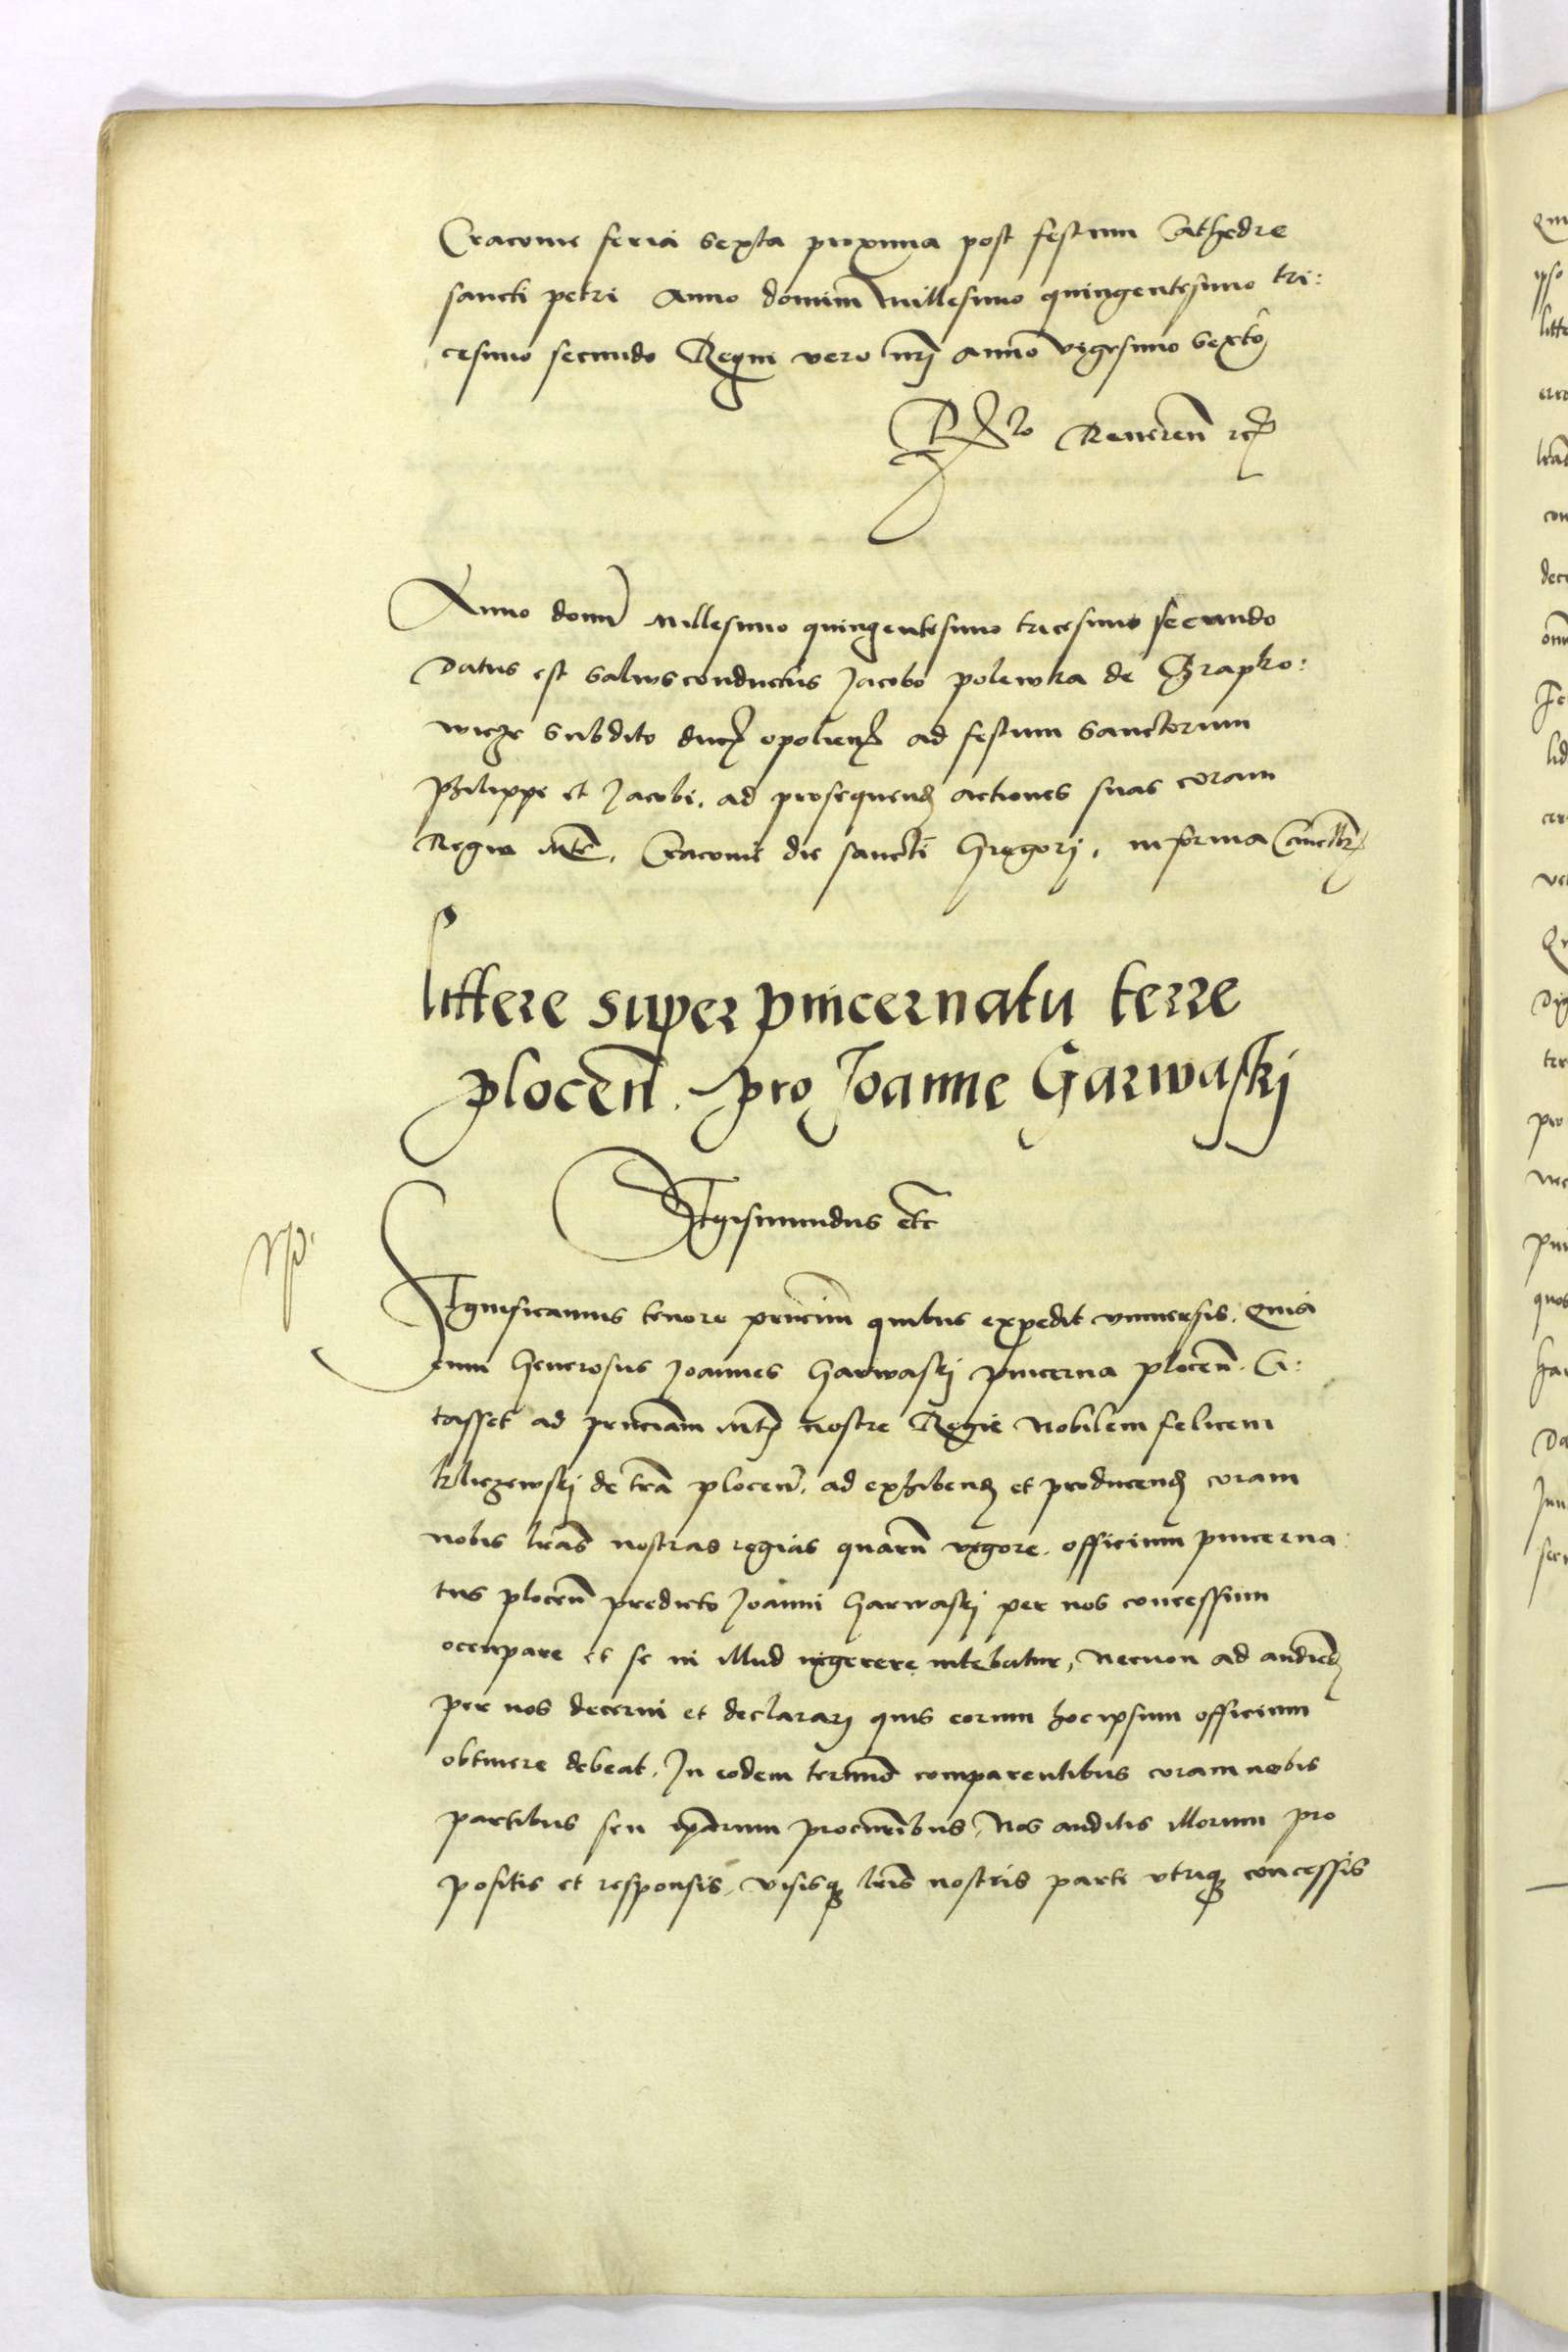 Cracovie feria sexta proxima post festum Cathedre
sancti petri Anno domini Millesimo quingentesimo tri:
cesimo secundo Regni vero nrj anno vigesimo sexto
Rlo Reveren rc
Anno domi Millesimo quingentesimo tricesimo secundo
Datus est salvusconductus Jacobo polewka de Chrapko:
wicze subdito ducis opolien ad festum sanctorum
Philippi et Jacobi. ad prosequend actiones suas coram
Regia Mte. Cracovie die sancti Gregorj. in forma Cancellr
littere super pincernatu terre
plocen. pro Joanne Garwaskj
Sigismundus etc
Rp.
Significamus tenore pntium quibus expedit universis. Quia
cum Generosus Joannes Garwaskj pincerna plocen. Ci:
tasset ad pntiam Mtis nostre Regie Nobilem felicem
kliczewskj de tra plocen. ad exhibend et producend coram
nobis lras nostras regias quarum vigore. officium pincerna
tus plocen predicto Joanni Garwaskj per nos concessum
occupare et se in illud ingerere nitebatur, Necnon ad audiend
per nos decerni et declararj quis eorum hoc ipsum officium
obtinere debeat. In eodem termino comparentibus coram nobis
partibus seu ipsarum procuratoribus, Nos auditis illorum pro
positis et responsis, visisque lris nostris parti utrique concessis